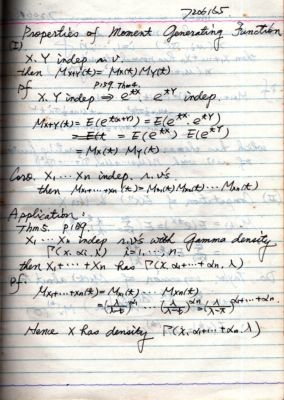 720615
Properties of Moment Generating Function
(I)
X. Y indep r. v.
then Mx+y(t) = Mx(t) My(t)
Pf P189. Thm4.
X. Y indep ⇒ e^tX e^tY indep.
Mx+y(t) = E(e^t(x+y)) = E(e^tx · e^tY)
= E(e^tx) E(e^tY)
= Mx(t) My(t).
Coro. X1, ⋯ Xn indep. r.v's
then Mx1+⋯+xn(t) = Mx1(t) Mx2(t) ⋯ Mxn(t)
Application:
Thm5. P189.
X1 ⋯ Xn indep r.v's with Gamma density
Γ(x, αi, λ) i=1, ⋯, n.
then X1+⋯+Xn has Γ(x, α1+⋯+αn, λ)
Pf:
Mx1+⋯+xn(t) = Mx1(t) ⋯ Mxn(t)
= (λ/λ-t)^α1 ⋯ (λ/λ-t)^αn = (λ/λ-t)^α1+⋯+αn.
Hence X has density Γ(x, α1+⋯+αn, λ)